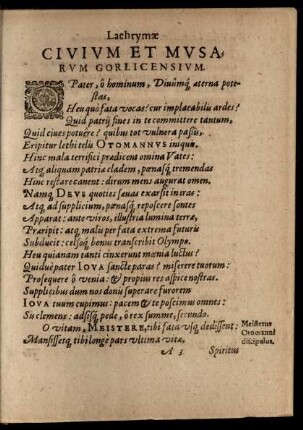 Lachrymæ
CIVIUM ET MUSA,
RUM GORLICENSIUM.
O Pater, ô hominum, Divûmq́ aterna pote-
stas,
Heu quò fata vocas? cur implacabilis ardes?
Quid patrij fines in te committere tantum,
Quid cives potuêre? quibus tot vulnera passus,
Eripitur lethi telis OTOMANNUS iniquu.
Hinc mala terrifici prædicent omina Vates:
Atq́ aliquam patria cladem, pœnasq́ tremendas
Hinc restare canent: dirum metus augurat omen.
Namq́ DEUS quoties sævas exarsit in iras:
Atq́ ad supplicium, pœnasq́ reposcere sontes
Apparat: ante viros, illustria lumina terræ,
Præripit: atq́ malu per fata extrema futuris
Subducit: celsoq́ bonus transcribit Olympo.
Heu quianam tanti cinxerunt mœnia luctus?
Quidve pater IOVA sanctè paras? miserere tuorum:
Prosequere ô venia: & propius res aspice nostras.
Supplicibus dum nos donis superare furorem
IOVA tuum cupimus: pacem & te poscimus omnes:
Sis clemens: adsisq́ pede, ô rex summe, secundo.
O vitam, MEISTERE, tibi fata usq́ dedissent:
Mansissetq́ tibi longè pars ultima vitæ.
Meisterus
Otomanni
discipulus.
A 3. Spiritus